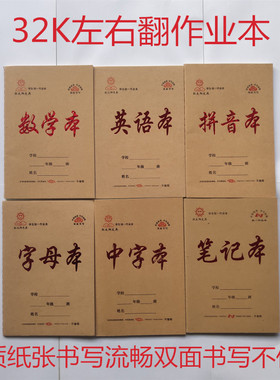 32K左右翻作业本
数学本
学校
年级 班
姓名
英语本
学校
年级 班
姓名
拼音本
学校
年级 班
姓名
字母本
学校
年级 班
姓名
中字本
学校
年级 班
姓名
笔记本
学校
年级 班
姓名
质纸张书写流畅双面书写不